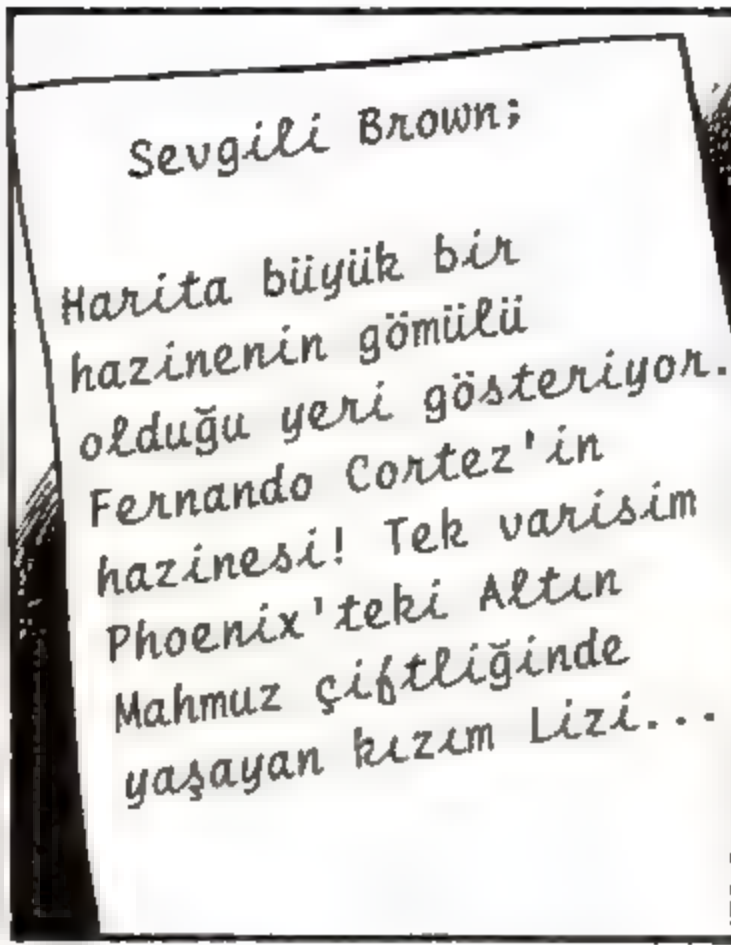 Sevgili Brown;
Harita büyük bir
hazinenin gömülü
olduğu yeri gösteriyor.
Fernando Cortez'in
hazinesi! Tek varisim
Phoenix'teki Altın
Mahmuz çiftliğinde
yaşayan kızım Lizi...